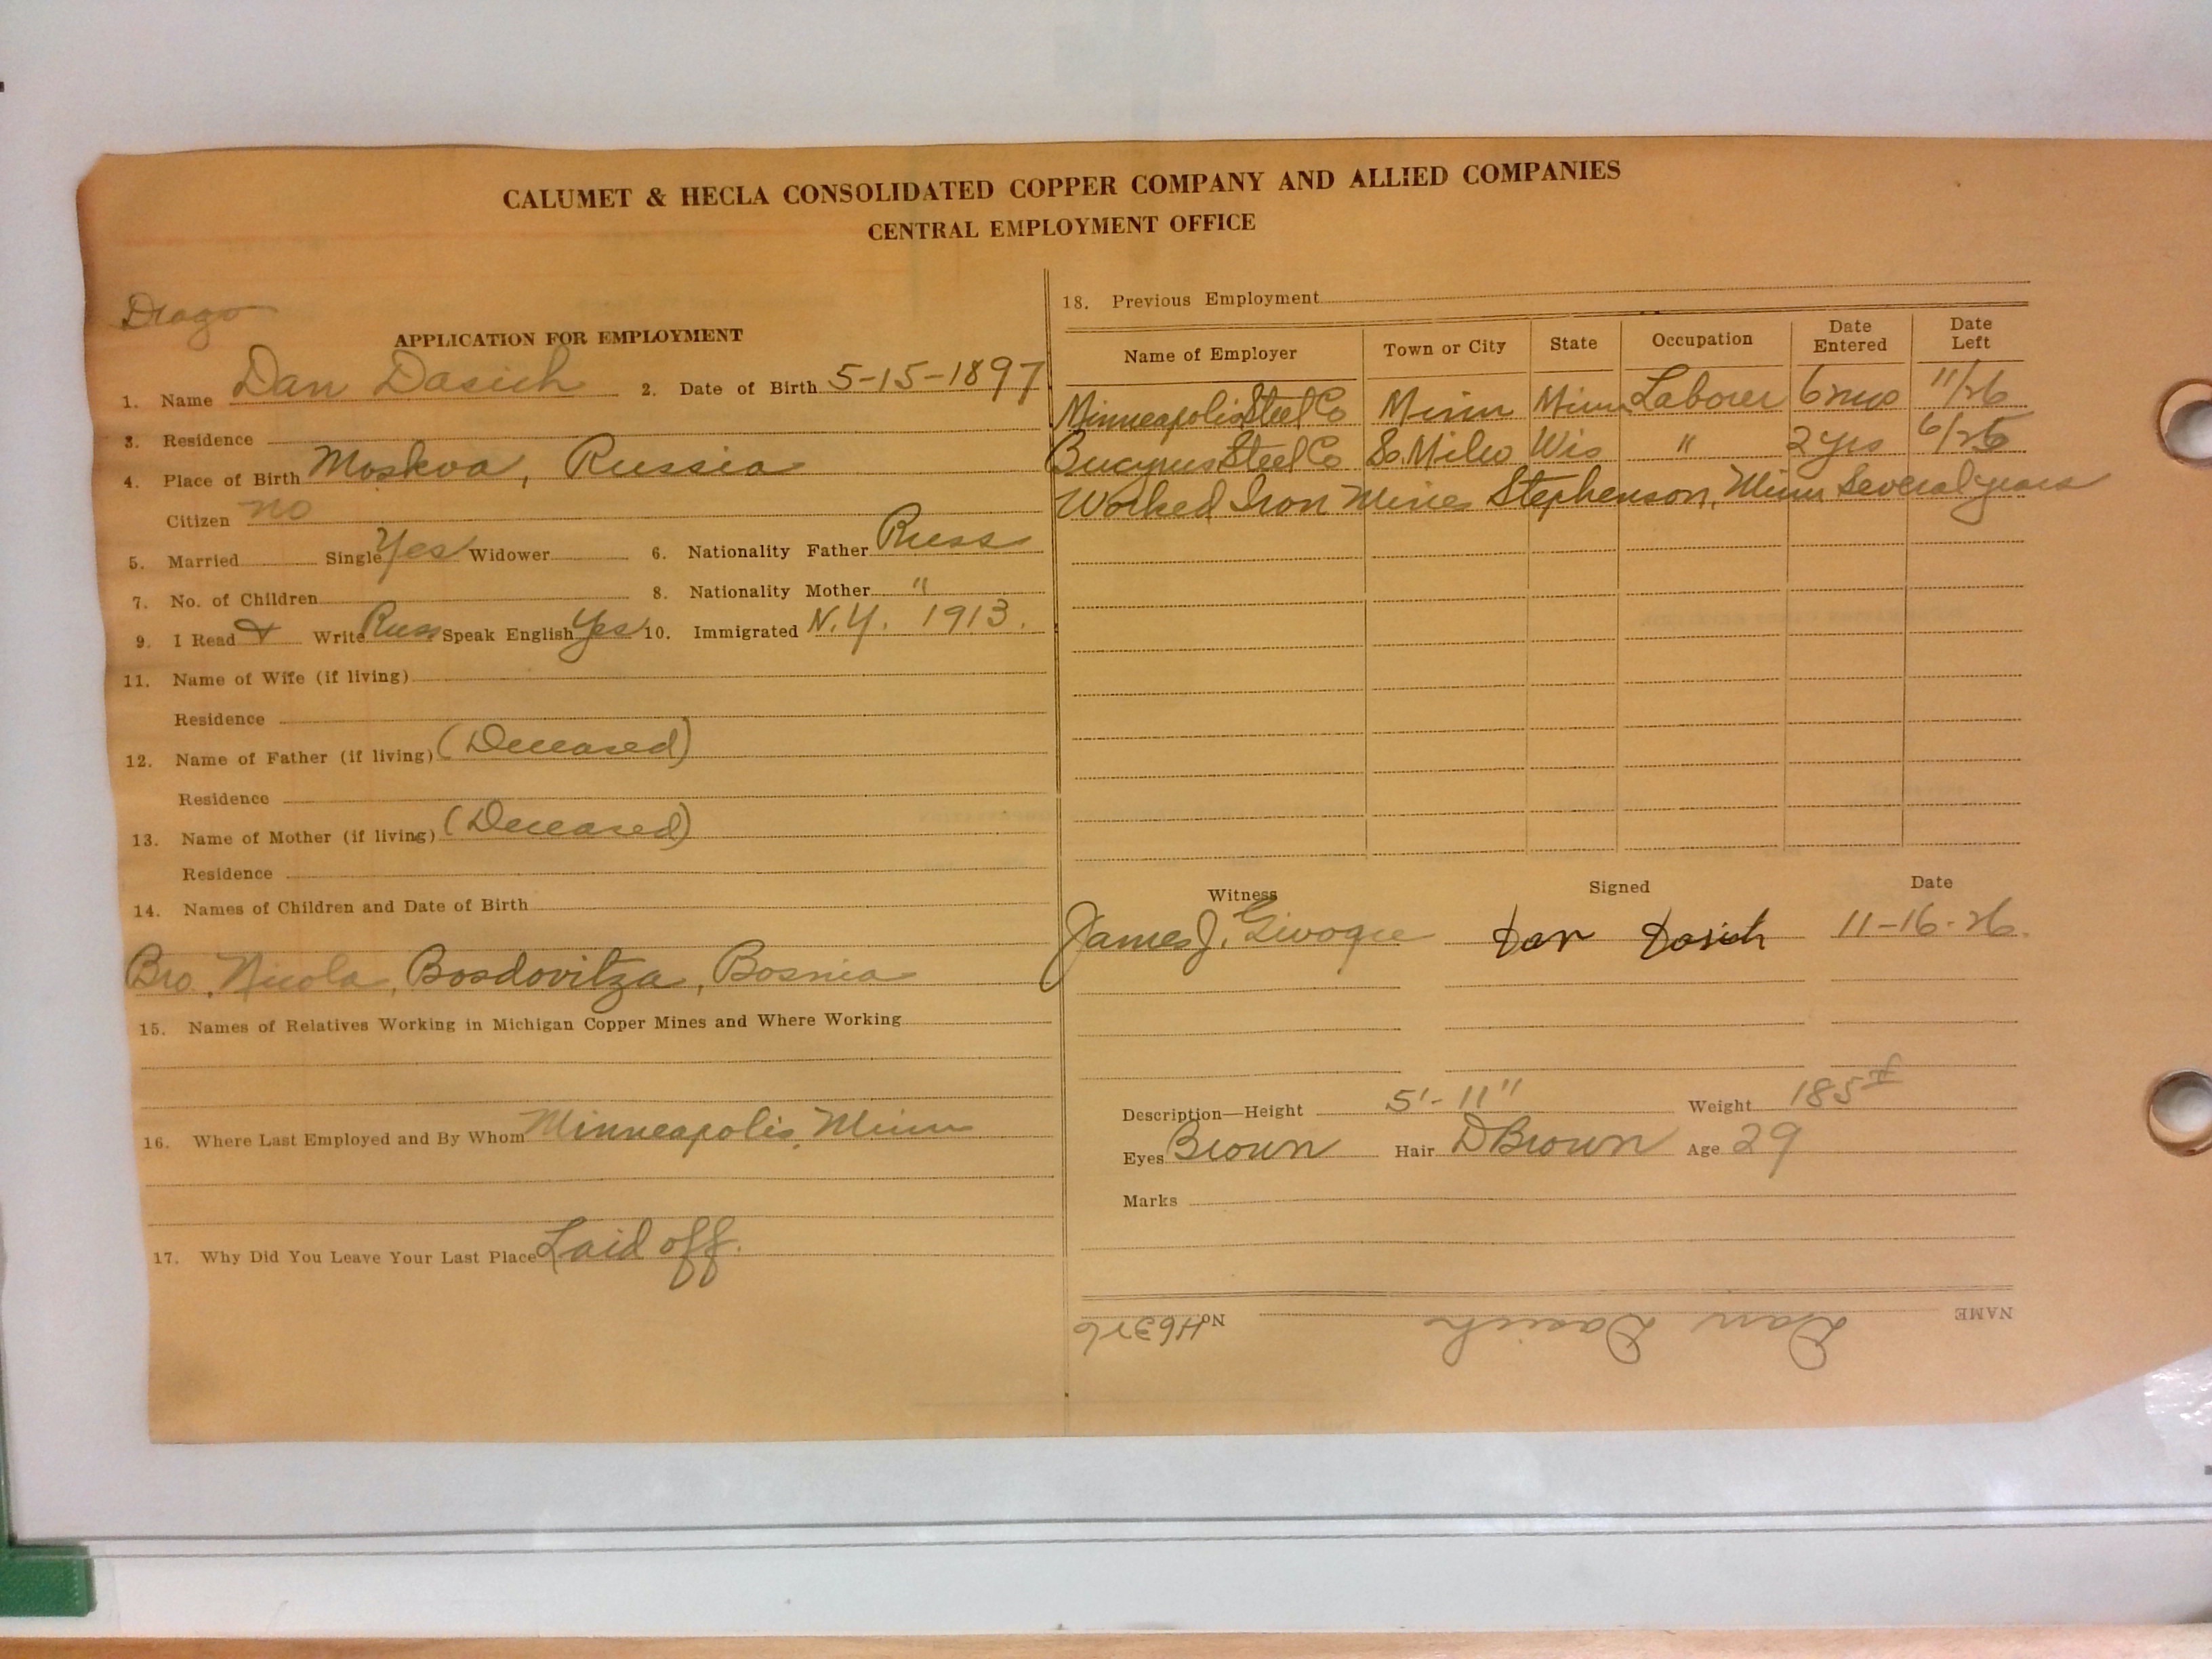 CALUMET & HECLA CONSOLIDATED COPPER COMPANY AND ALLIED COMPANIES
CENTRAL EMPLOYMENT OFFICE
Drago
APPLICATION FOR EMPLOYMENT
1. Name Dan Dasich 2. Date of Birth 5-15-1897
3. Residence
4. Place of Birth Moskva, Russia
Citizen no
5. Married Single Yes Widower 6. Nationality Father Russ
7. No. of Children 8. Nationality Mother "
9. I Read & Write Russ Speak English Yes 10. Immigrated N.Y. 1913.
11. Name of Wife (if living)
Residence
12. Name of Father (if living) (Deceased)
Residence
13. Name of Mother (if living) (Deceased)
Residence
14. Names of Children and Date of Birth
Bro. Nicola, Bosdovitza, Bosnia
15. Names of Relatives Working in Michigan Copper Mines and Where Working
16. Where Last Employed and By Whom Minneapolis, Minn
17. Why Did You Leave Your Last Place Laid off.
18. Previous Employment
Name of Employer Town or City State Occupation Date Entered Date Left
Minneapolis Steel Co Minn Minn Laborer 6 mo 11/26
Bucyrus Steel Co So. Milw Wis " 2 yrs 6/26
Worked Iron Mines Stephenson, Minn Several years
Witness Signed Date
James J. Dan Dasich 11-16-26.
Description—Height 5'-11" Weight 185#
Eyes Brown Hair D Brown Age 29
Marks
NAME Dan Dasich No. H6326